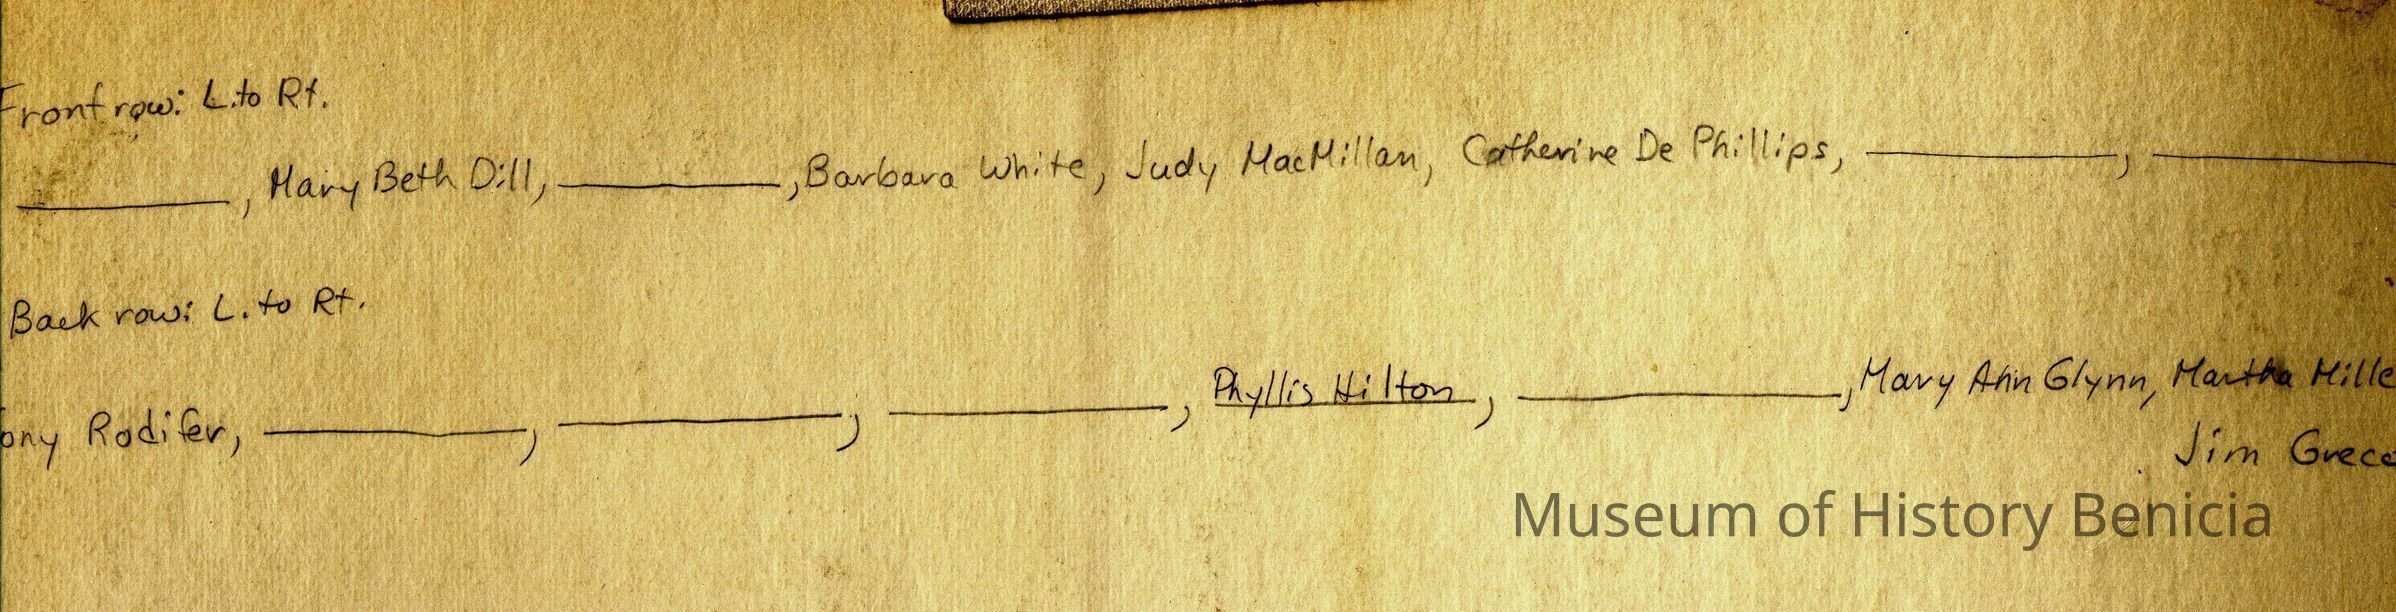 Front row: L. to Rt.
__________, Mary Beth Dill, __________, Barbara White, Judy MacMillan, Catherine De Phillips, __________, __________
Back row: L. to Rt.
Tony Rodifer, __________, __________, __________, Phyllis Hilton, __________, Mary Ann Glynn, Martha Mille
Jim Greco
Museum of History Benicia